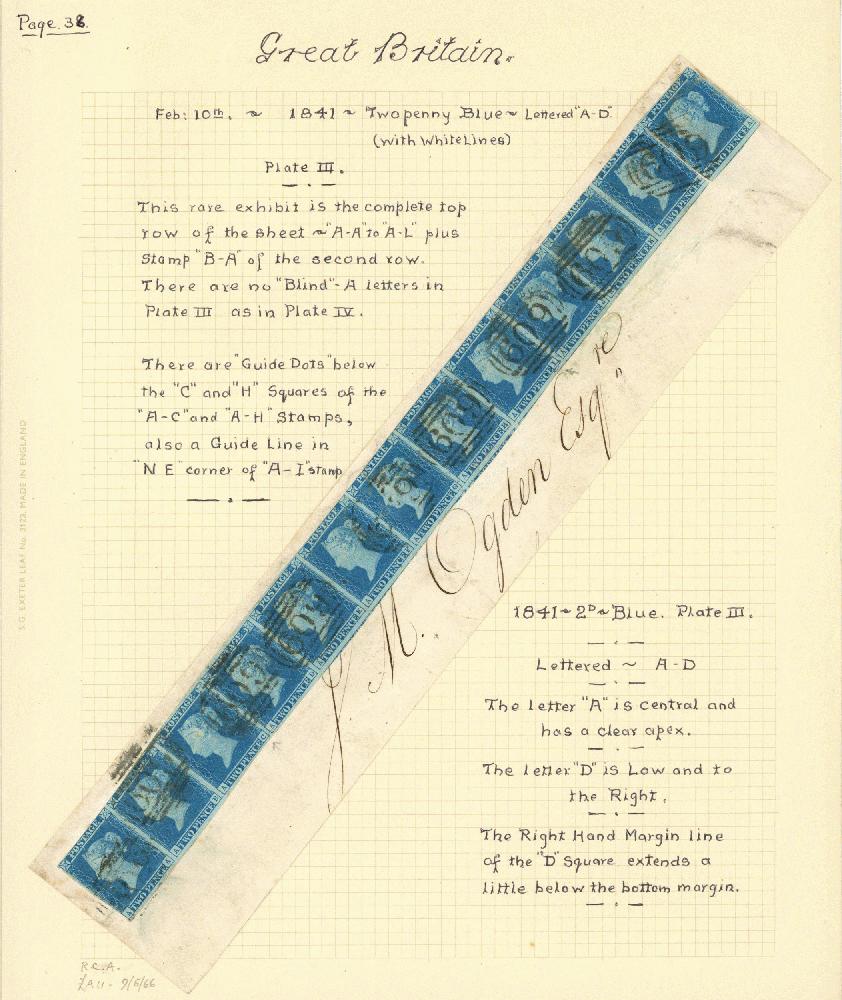 Page. 38.
Great Britain.
Feb: 10th. ~ 1841 ~ Twopenny Blue ~ Lettered "A-D"
(with White Lines)
Plate III.
This rare exhibit is the complete top
row of the sheet ~ "A-A" to "A-L" plus
Stamp "B-A" of the second row.
There are no "Blind" - A letters in
Plate III as in Plate IV.
There are "Guide Dots" below
the "C" and "H" Squares of the
"A-C" and "A-H" Stamps,
also a Guide Line in
"N E" corner of "A-I" stamp
J. M. Ogden Esqre
1841 ~ 2D ~ Blue. Plate III.
Lettered ~ A-D
The letter "A" is central and
has a clear apex.
The letter "D" is Low and to
the Right.
The Right Hand Margin line
of the "D" Square extends a
little below the bottom margin.
S.G. EXETER LEAF No. 3123. MADE IN ENGLAND
POSTAGE
TWO PENCE
609
R.C.A.
9/6/66